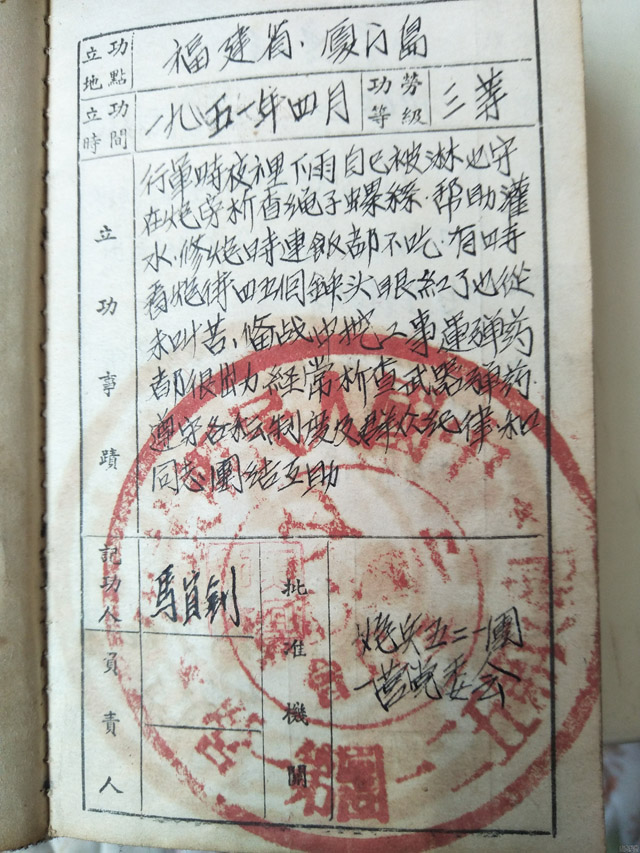 立功地點 福建省.厦门島
立功時間 一九五一年四月 功勞等級 三等
立功事蹟
行軍時夜裡下雨自己被淋也守
在炮旁析查绳子螺絲.帮助灌
水.修炮時連飯都不吃.有時
看炮待四五個鈡头眼紅了也從
未叫苦、俻战中挖工事運弹药
都很出力.經常析查武器弹药.
遵守各种制度及群众纪律.和
同志團结互助
記功人 馬
負責人
批准機關 炮兵五二一團
一营党委会